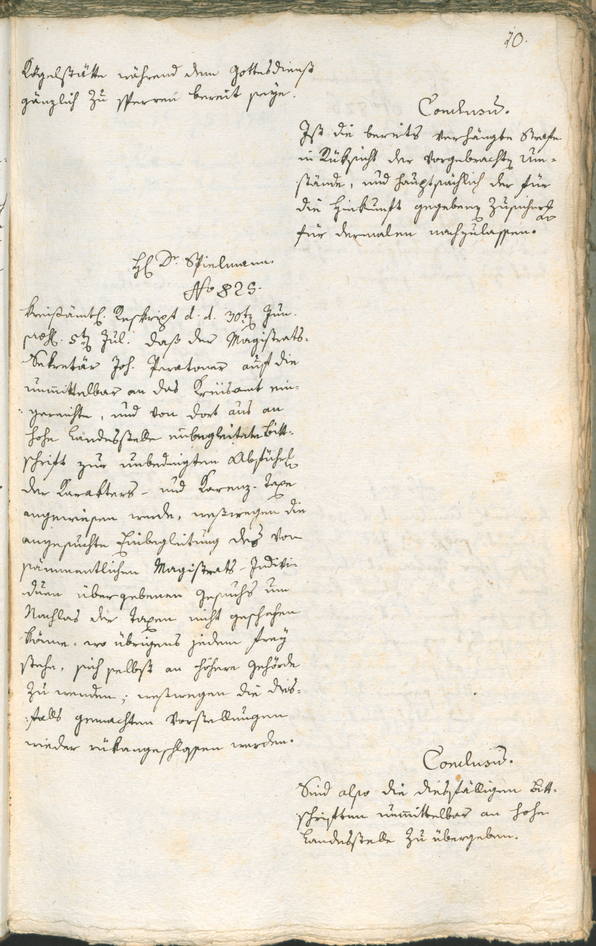 10.
Kögelstätte während dem Gottesdienst
gänzlich zu sperren bereit seye.
Conclusū.
Ist die bereits verhängte Strafe
in Rüksicht der vorgebrachten Um-
stände, und hauptsächlich der für
die Hinkunft gegebenen Zusicherung
für dermalen nachzulassen.
H. Dr. Spielmann.
No 825.
Kreisämtl. Reskript d. d. 30ten Jun.
präs. 5ten Jul. daß der Magistrats-
Sekretär Joh. auf die
unmittelbar an das Kreisamt ein-
gereichte, und von dort aus an
hohe Landesstelle einbegleitete Bitt-
schrift zur unbedingten Abführung
der Karakters- und Karenz-Taxe
angewiesen werde, weßwegen die
angesuchte Einbegleitung des von
sämmentlichen Magistrats-Indivi-
duen übergebenen Gesuchs um
Nachlas der Taxen nicht geschehen
könne, wo übrigens jedem frey
stehe, sich selbst an höhere Gehörde
zu wenden; weßwegen die dies-
falls gemachten Vorstellungen
wieder rükangeschlossen werden.
Conclusū.
Sind also die diesfälligen Bitt-
schriften unmittelbar an hohe
Landesstelle zu übergeben.